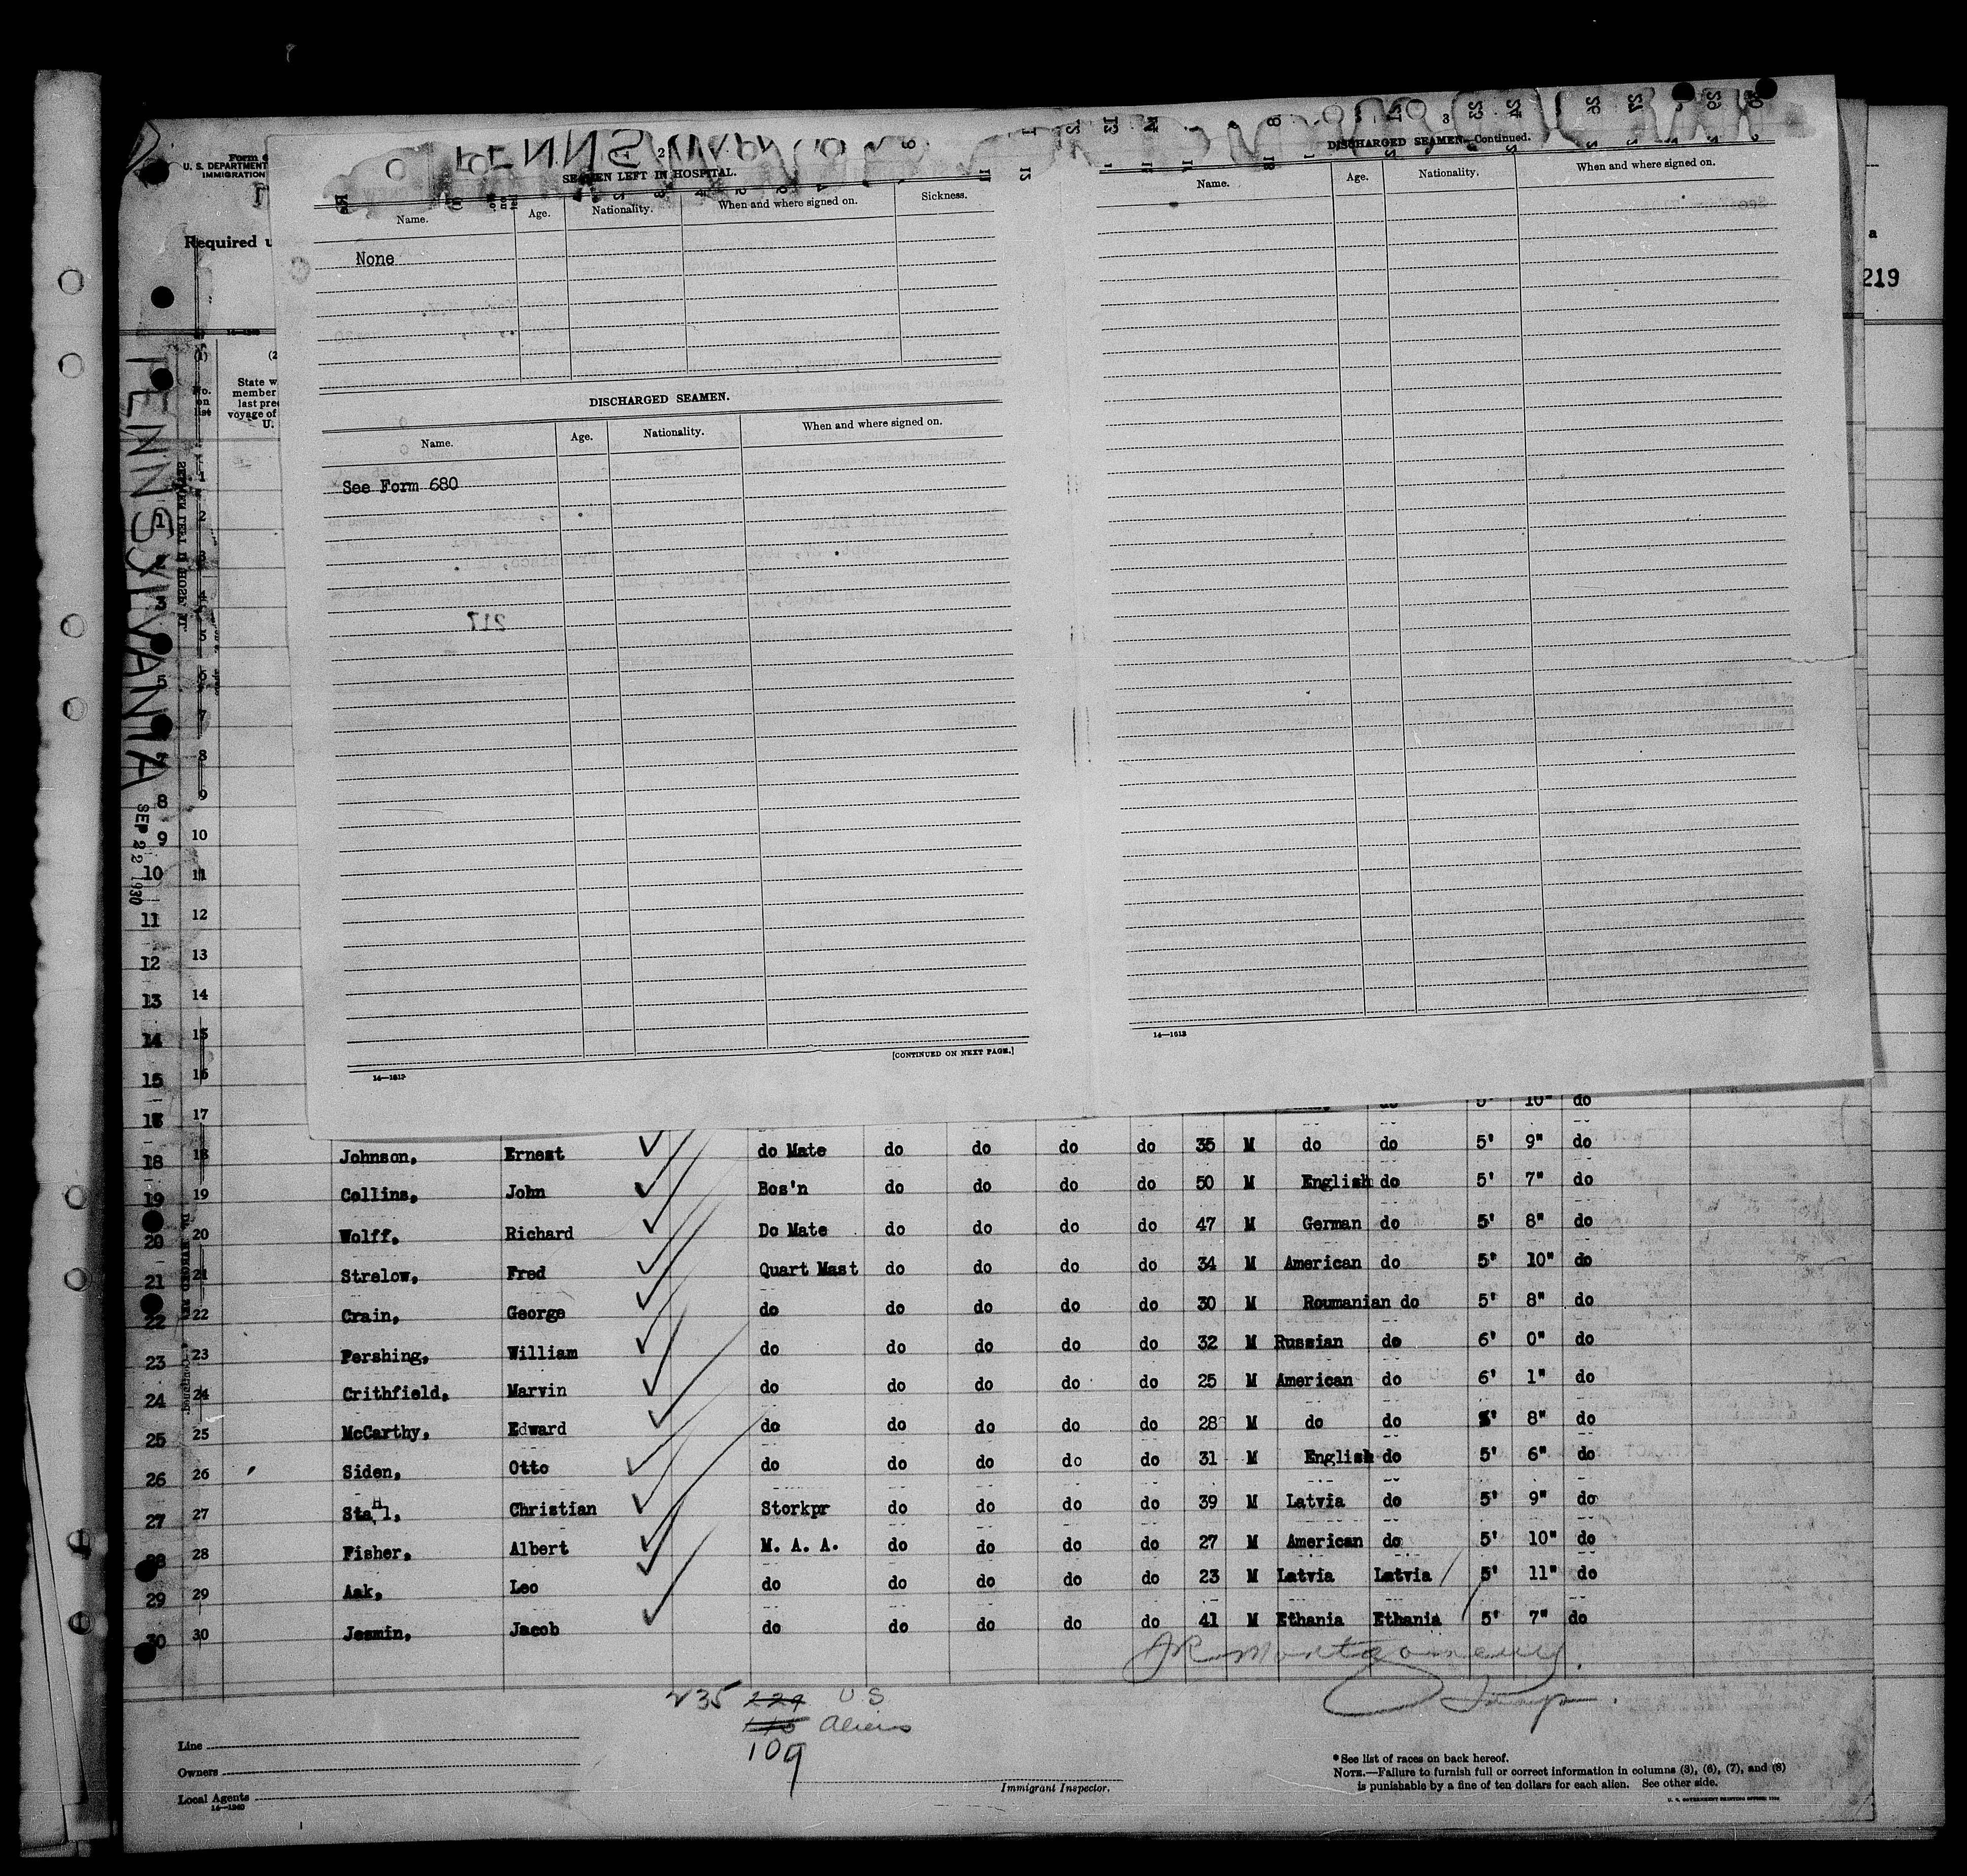 Form 6
U. S. DEPARTMENT
IMMIGRATION
Required u
a
219
PENNSYLVANIA
SEP 22 1930
2
SEAMEN LEFT IN HOSPITAL.
Name. Age. Nationality. When and where signed on. Sickness.
None
DISCHARGED SEAMEN.
Name. Age. Nationality. When and where signed on.
See Form 680
217
[CONTINUED ON NEXT PAGE.]
3
DISCHARGED SEAMEN—Continued.
Name. Age. Nationality. When and where signed on.
14—1613
(1)
No.
on
list
State w
member
last pre
voyage of
U.
5' 10" do
18 Johnson, Ernest do Mate do do do do 35 M do do 5' 9" do
19 Collins, John Bos'n do do do do 50 M English do 5' 7" do
20 Wolff, Richard Do Mate do do do do 47 M German do 5' 8" do
21 Strelow, Fred Quart Mast do do do do 34 M American do 5' 10" do
22 Crain, George do do do do do 30 M Roumanian do 5' 8" do
23 Pershing, William do do do do do 32 M Russian do 6' 0" do
24 Crithfield, Marvin do do do do do 25 M American do 6' 1" do
25 McCarthy, Edward do do do do do 28 M do do 5' 8" do
26 Siden, Otto do do do do do 31 M English do 5' 6" do
27 StaHl, Christian Storkpr do do do do 39 M Latvia do 5' 9" do
28 Fisher, Albert M. A. A. do do do do 27 M American do 5' 10" do
29 Aak, Leo do do do do do 23 M Latvia Latvia 5' 11" do
30 Jesmin, Jacob do do do do do 41 M Ethania Ethania 5' 7" do
JR Montgomery
235 229 U S
Aliens
109
Line
Owners
Local Agents
14—1240
Immigrant Inspector.
*See list of races on back hereof.
NOTE.—Failure to furnish full or correct information in columns (3), (6), (7), and (8)
is punishable by a fine of ten dollars for each alien. See other side.